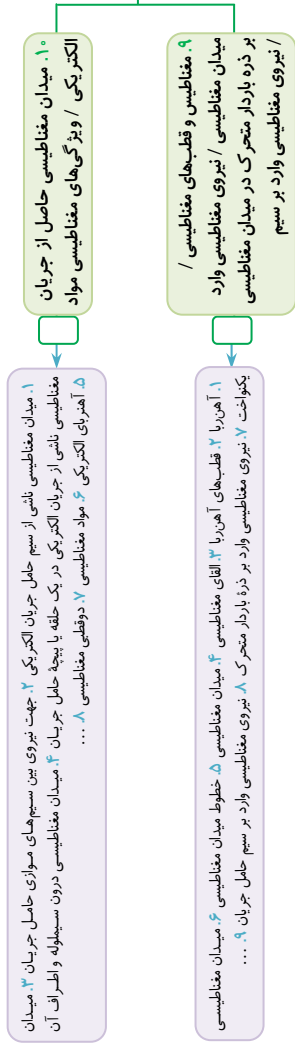 ۹. مغناطیس و قطب‌های مغناطیسی /
میدان مغناطیسی / نیروی مغناطیسی وارد
بر ذره باردار متحرک در میدان مغناطیسی
/ نیروی مغناطیسی وارد بر سیم
۱. آهن‌ربا ۲. قطب‌های آهن‌ربا ۳. القای مغناطیسی ۴. میدان مغناطیسی ۵. خطوط میدان مغناطیسی ۶. میـدان مغناطیسـی
یکنواخت ۷. نیروی مغناطیسی وارد بر ذرهٔ باردار متحرک ۸. نیروی مغناطیسی وارد بر سیم حامل جریان ۹. ...
۱۰. میدان مغناطیسی حاصل از جریان
الکتریکی / ویژگی‌های مغناطیسی مواد
۱. میدان مغناطیسی ناشی از سیم حامل جریان الکتریکی ۲. جهت نیروی بین سـیم‌هـای مـوازی حامـل جریـان ۳. میـدان
مغناطیسی ناشی از جریان الکتریکی در یک حلقه یا پیچهٔ حامل جریـان ۴. میـدان مغناطیسـی درون سـیملوله و اطـراف آن
۵. آهنربای الکتریکی ۶. مواد مغناطیسی ۷. دوقطبی مغناطیسی ۸. ...